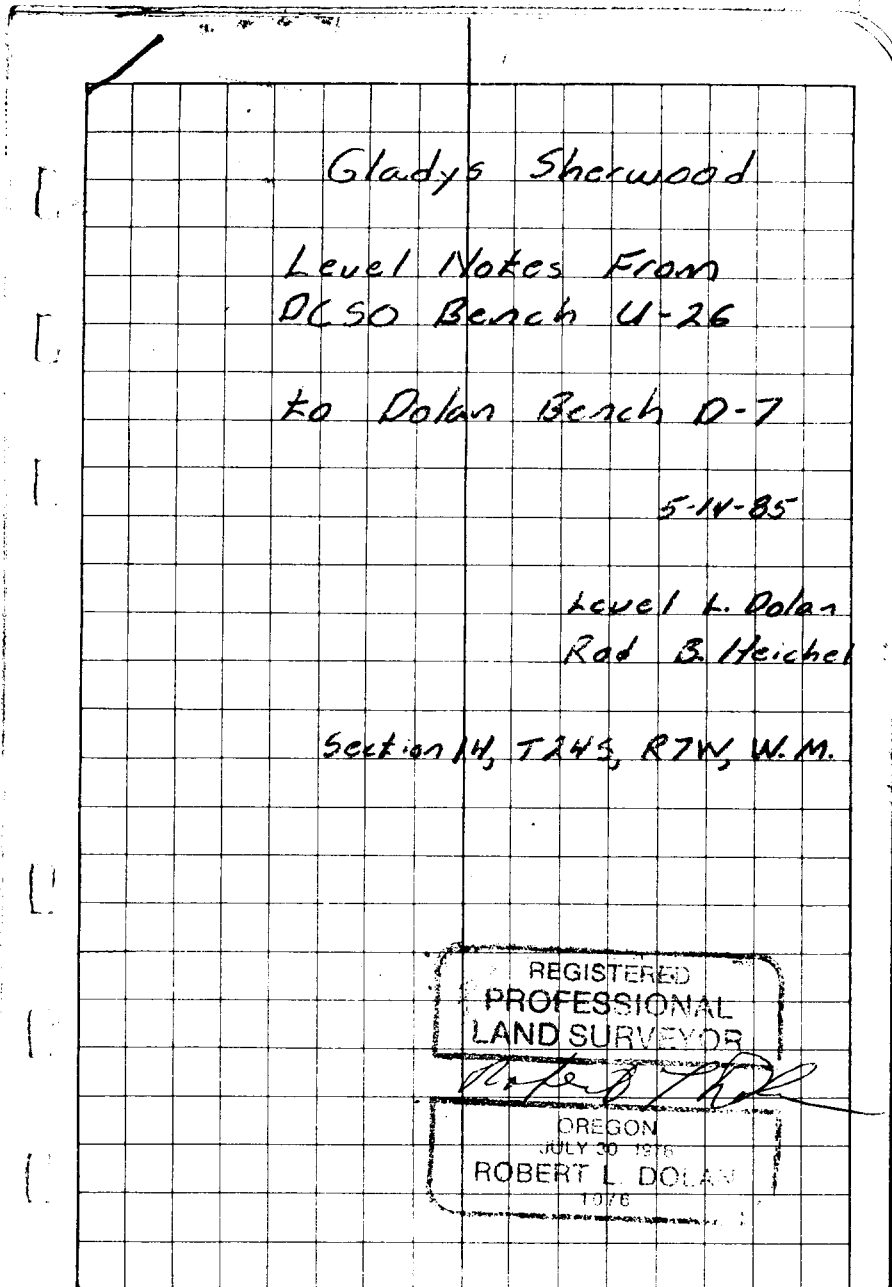 Gladys Sherwood
Level Notes From
DCSO Bench U-26
to Dolan Bench D-7
5-14-85
Level L. Dolan
Rod B. Heichel
Section 14, T24S, R7W, W.M.
REGISTERED
PROFESSIONAL
LAND SURVEYOR
OREGON
JULY 30 1976
ROBERT L. DOLAN
1076